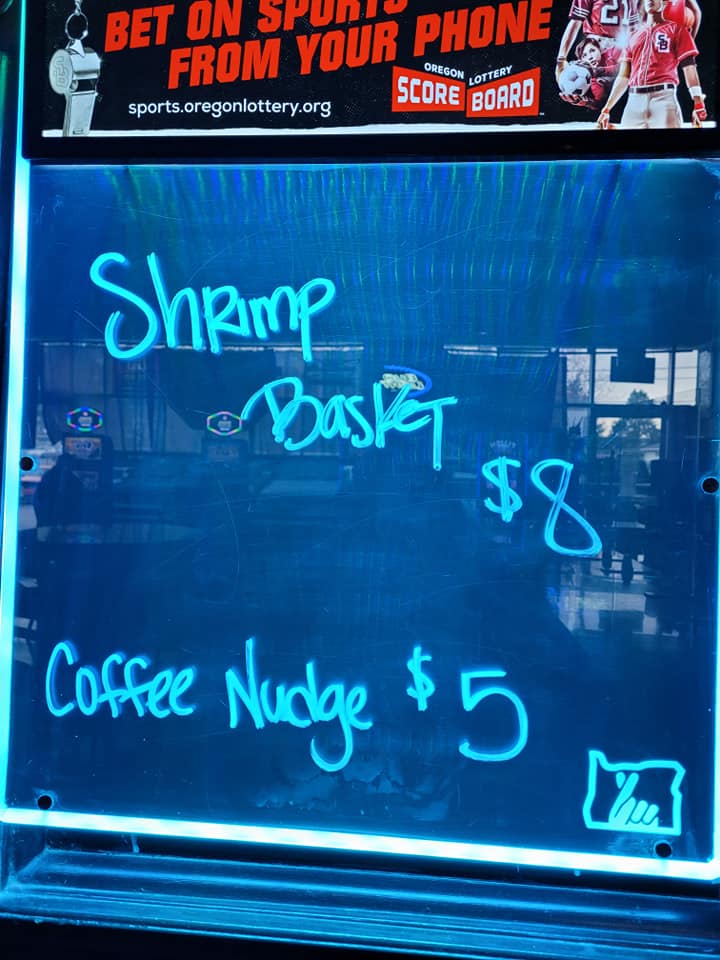 BET ON SPORTS
FROM YOUR PHONE
sports.oregonlottery.org
OREGON LOTTERY
SCORE BOARD
21
SB
Shrimp
Basket
$8
Coffee Nudge $5